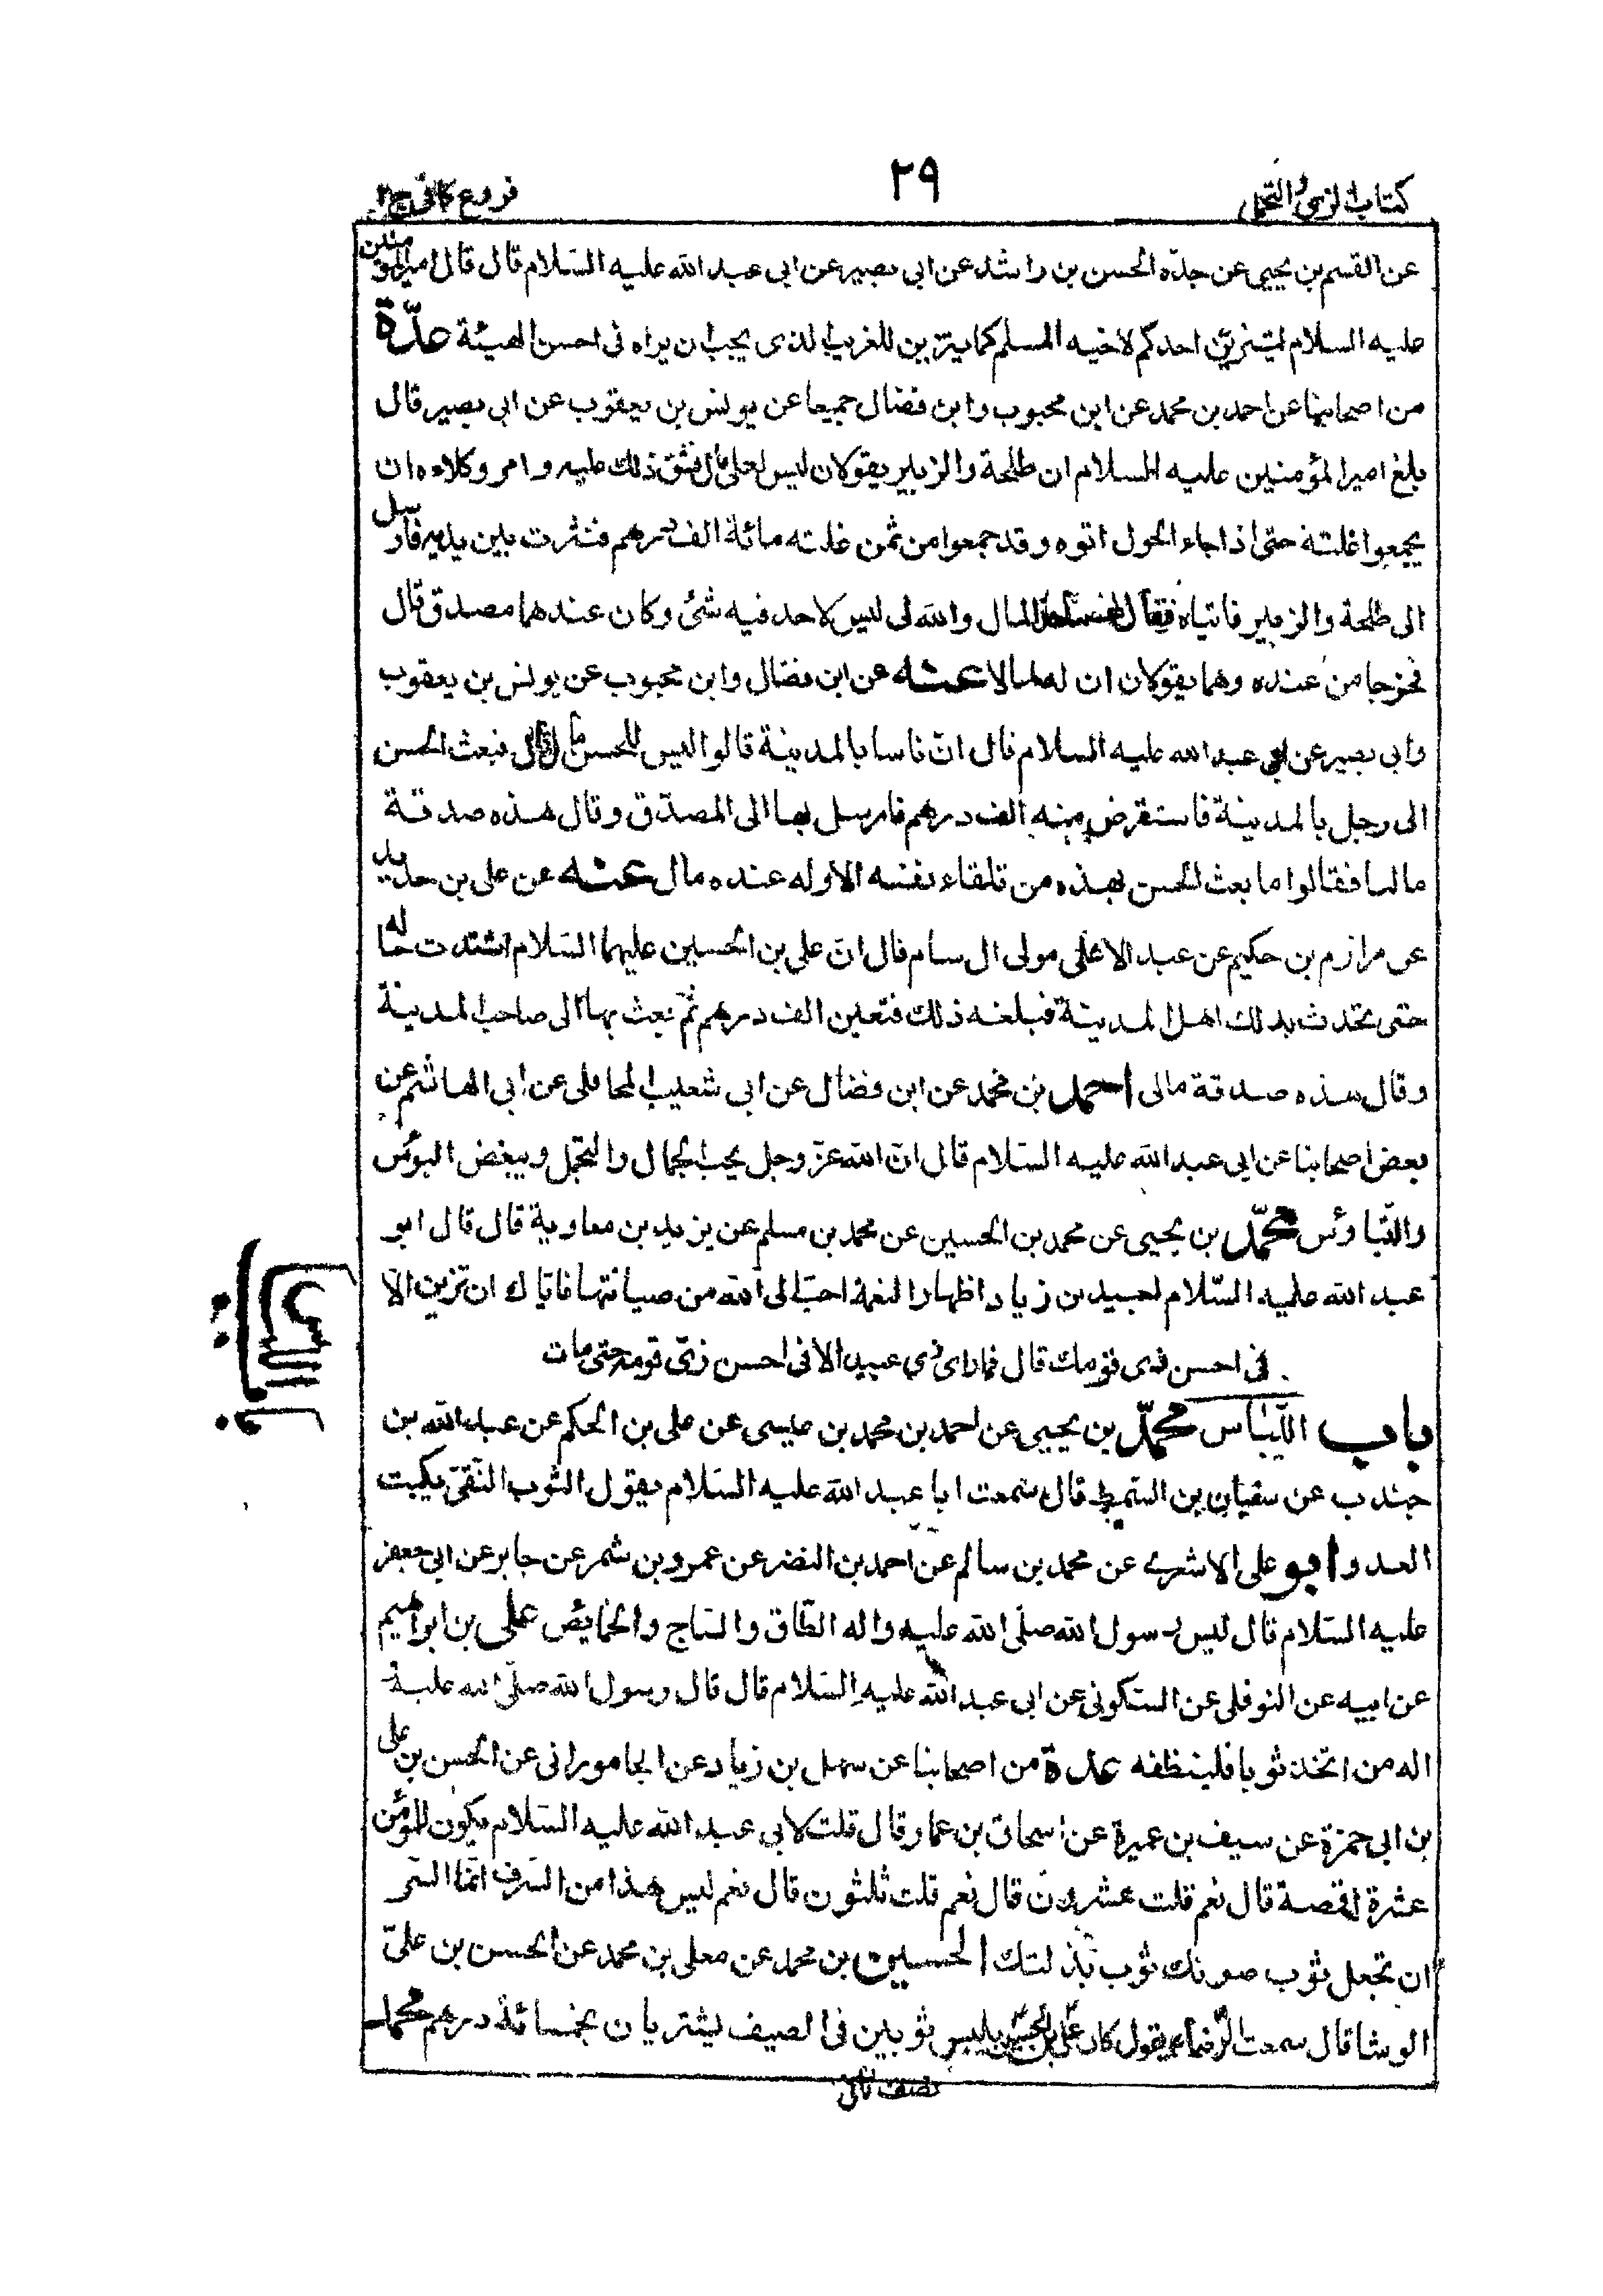 كتاب الزي والتجمل
٢٩
فروع كافى ج٢
عن القسم بن يحيى عن جدّه الحسن بن راشد عن ابى بصير عن ابى عبد الله عليه السّلام قال قال امير المؤمنين
عليه السلام ليتزين احدكم لاخيه المسلم كما يتزين للغريب الذى يحب ان يراه فى احسن الهيئة عدّة
من اصحابنا عن احمد بن محمد عن ابن محبوب وابن فضال جميعا عن يونس بن يعقوب عن ابى بصير قال
بلغ امير المؤمنين عليه السلام ان طلحة والزبير يقولان ليس لعلى مال فشق ذلك عليه وامر وكلاءه ان
يجمعوا غلته حتى اذا جاء الحول اتوه وقد جمعوا من ثمن غلته مائة الف درهم فنثرت بين يديه فارسل
الى طلحة والزبير فاتياه فقال لهما هذا المال والله لى ليس لاحد فيه شئ وكان عندهما مصدق قال
فخرجا من عنده وهما يقولان ان له لمالا عنه عن ابن فضال وابن محبوب عن يونس بن يعقوب
وابى بصير عن ابى عبد الله عليه السلام قال انّ ناسا بالمدينة قالوا ليس للحسن مال قال فبعث الحسن
الى رجل بالمدينة فاستقرض منه الف درهم فارسل بها الى المصدّق وقال هذه صدقة
مالنا فقالوا ما بعث الحسن بهذه من تلقاء نفسه الا وله عنده مال عنه عن على بن حديد
عن مرازم بن حكيم عن عبد الاعلى مولى ال سام قال ان على بن الحسين عليهما السّلام اشتدت حاله
حتى تحدث بذلك اهل المدينة فبلغه ذلك فتعين الف درهم ثمّ بعث بها الى صاحب المدينة
وقال هذه صدقة مالى احمد بن محمد عن ابن فضال عن ابى شعيب المحاملى عن ابى هاشم عن
بعض اصحابنا عن ابى عبد الله عليه السّلام قال انّ الله عزّ وجل يحب الجمال والتجمل ويبغض البؤس
والتّباؤس محمّد بن يحيى عن محمد بن الحسين عن محمد بن مسلم عن يزيد بن معاوية قال قال ابو
عبد الله عليه السّلام لعبيد بن زياد اظهار النعمة احبّ الى الله من صيانتها فاياك ان تزين الّا
فى احسن زى قومك قال فما راى فى عبيد الا فى احسن زىّ قومه حتى مات
باب اللّباس محمّد بن يحيى عن احمد بن محمد بن عيسى عن على بن الحكم عن عبد الله بن
جندب عن سفيان بن السّمط قال سمعت ابا عبد الله عليه السّلام يقول الثوب النّقىّ يكبت
العدو ابو على الاشعرى عن محمد بن سالم عن احمد بن النضر عن عمرو بن شمر عن جابر عن ابى جعفر
عليه السّلام قال لبس رسول الله صلّى الله عليه واله الطّاق والسّاج والخمايص على بن ابراهيم
عن ابيه عن النوفلى عن السّكونى عن ابى عبد الله عليه السّلام قال قال رسول الله صلّى الله عليه
اله من اتّخذ ثوبا فلينظفه عدة من اصحابنا عن سهل بن زياد عن الجامورانى عن الحسن بن على
بن ابى حمزة عن سيف بن عميرة عن اسحاق بن عمار قال قلت لابى عبد الله عليه السّلام يكون للمؤمن
عشرة اقمصة قال نعم قلت عشرون قال نعم قلت ثلثون قال نعم ليس هذا من السّرف انّما السّر
ان تجعل ثوب صونك ثوب بذلتك الحسين بن محمد عن معلى بن محمد عن الحسن بن علىّ
الوشا قال سمعت الرّضا يقول كان علىّ بن الحسين يلبس ثوبين فى الصيف يشتريان بخمسمائة درهم محمد
نصف ثانى